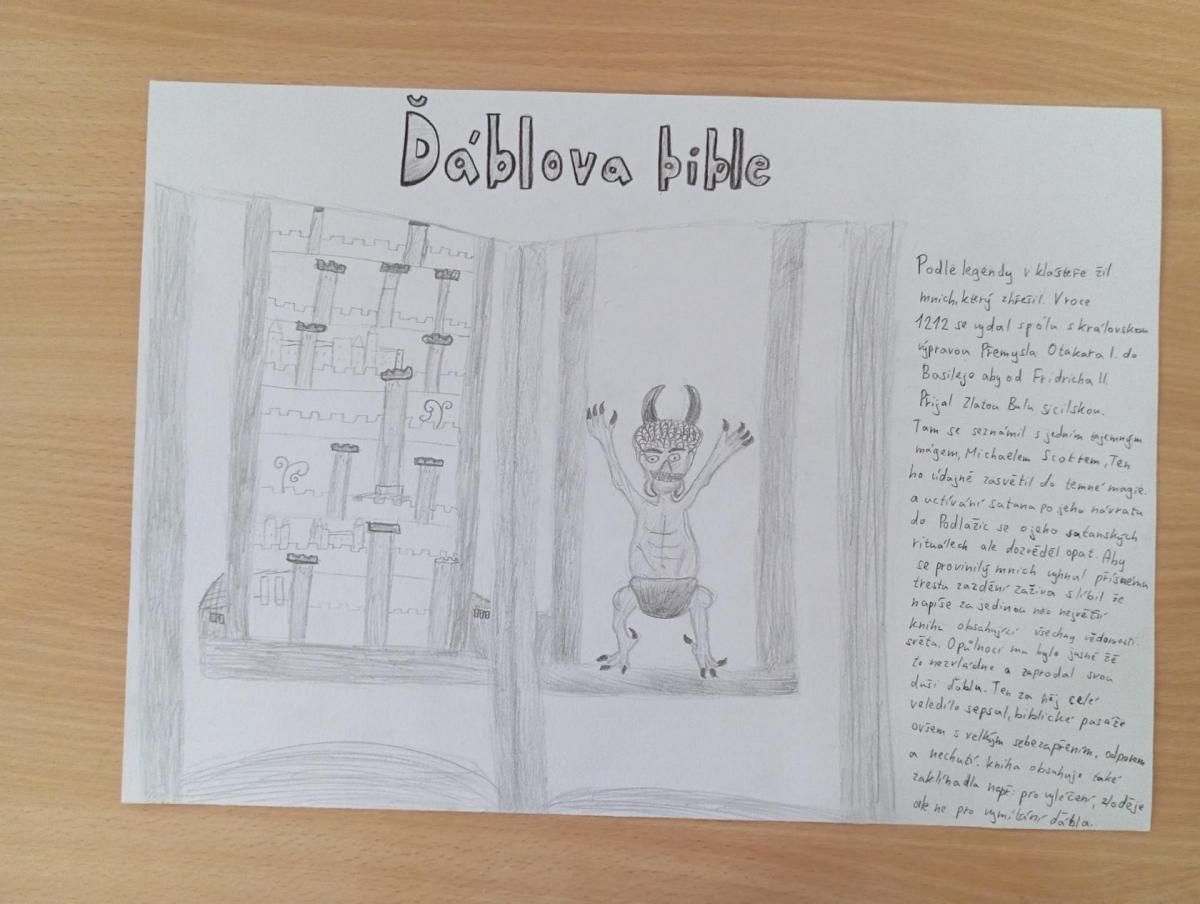 Ďáblova bible
Podle legendy v klášteře žil
mnich, který zhřešil. V roce
1212 se vydal spolu s královskou
výpravou Přemysla Otakara I. do
Basileje aby od Fridricha II.
Přijal Zlatou Bulu sicilskou.
Tam se seznámil s jedním tajemným
mágem, Michaelem Scottem, Ten
ho údajně zasvětil do temné magie.
a uctívání satana po jeho návratu
do Podlažic se o jeho satanských
rituálech ale dozvěděl opat. Aby
se provinilý mnich vyhnul přísnému
trestu zazdění zaživa slíbil že
napíše za jedinou noc největší
knihu obsahující všechny vědomosti
světa. O půlnoci mu bylo jasné že
to nezvládne a zaprodal svou
duši ďáblu. Ten za něj celé
veledílo sepsal, biblické pasáže
ovšem s velkým sebezapřením, odporem
a nechutí. kniha obsahuje také
zaklínadla např: pro vyléčení, zloděje
ale ne pro vymítání ďábla.